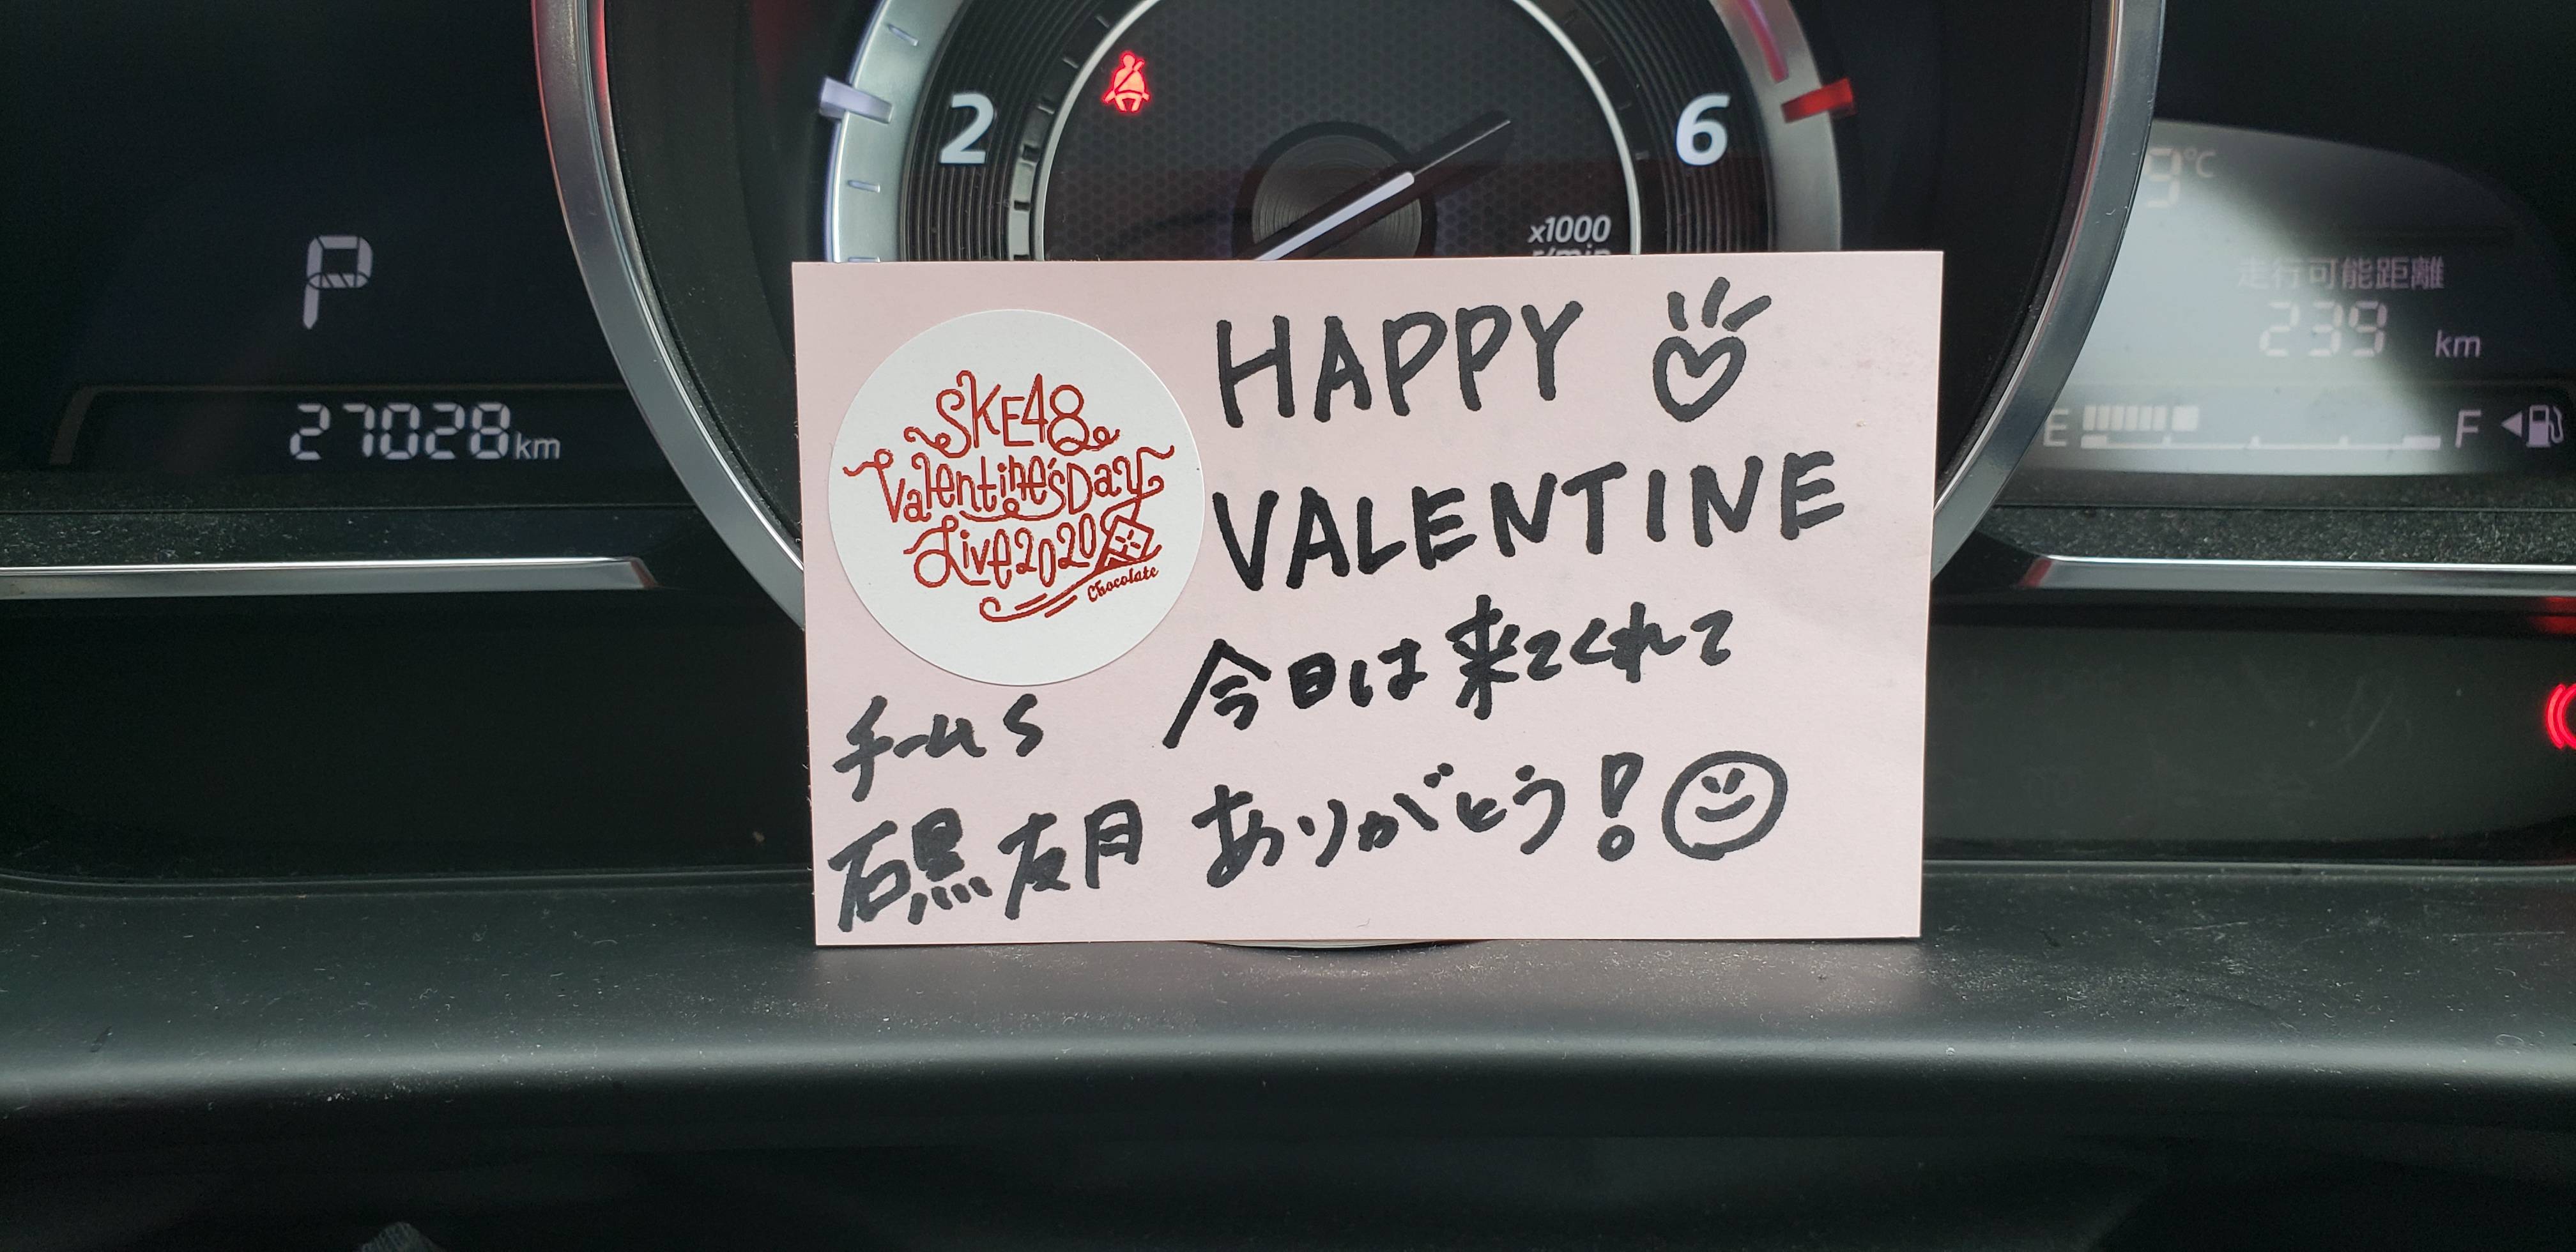 2
6
x1000
r/min
P
27028km
9℃
走行可能距離
239 km
E F
SKE48
Valentine'sDay
Live2020
Chocolate
HAPPY
VALENTINE
今日は来てくれて
ありがとう!
チームS
石黒友月